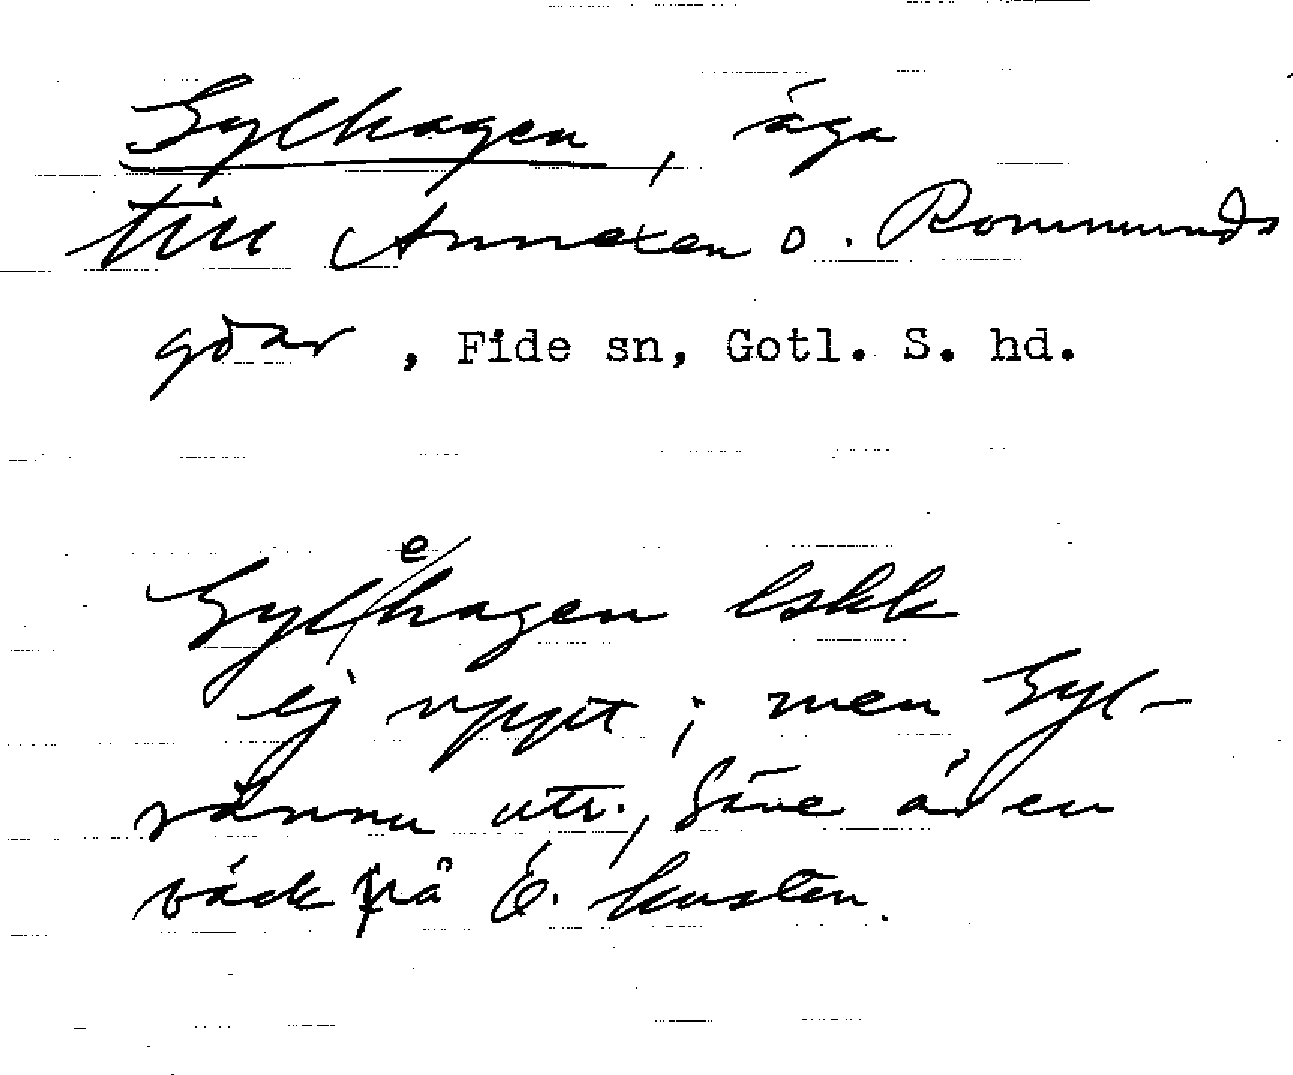 Sylhagen, äga
till Annexen o. Rommunds
gdar, Fide sn, Gotl. S. hd.
Sylehagen lskk
ej uppt; men Syl-
ränna utr., Säve är en
bäck på Ö. kusten.